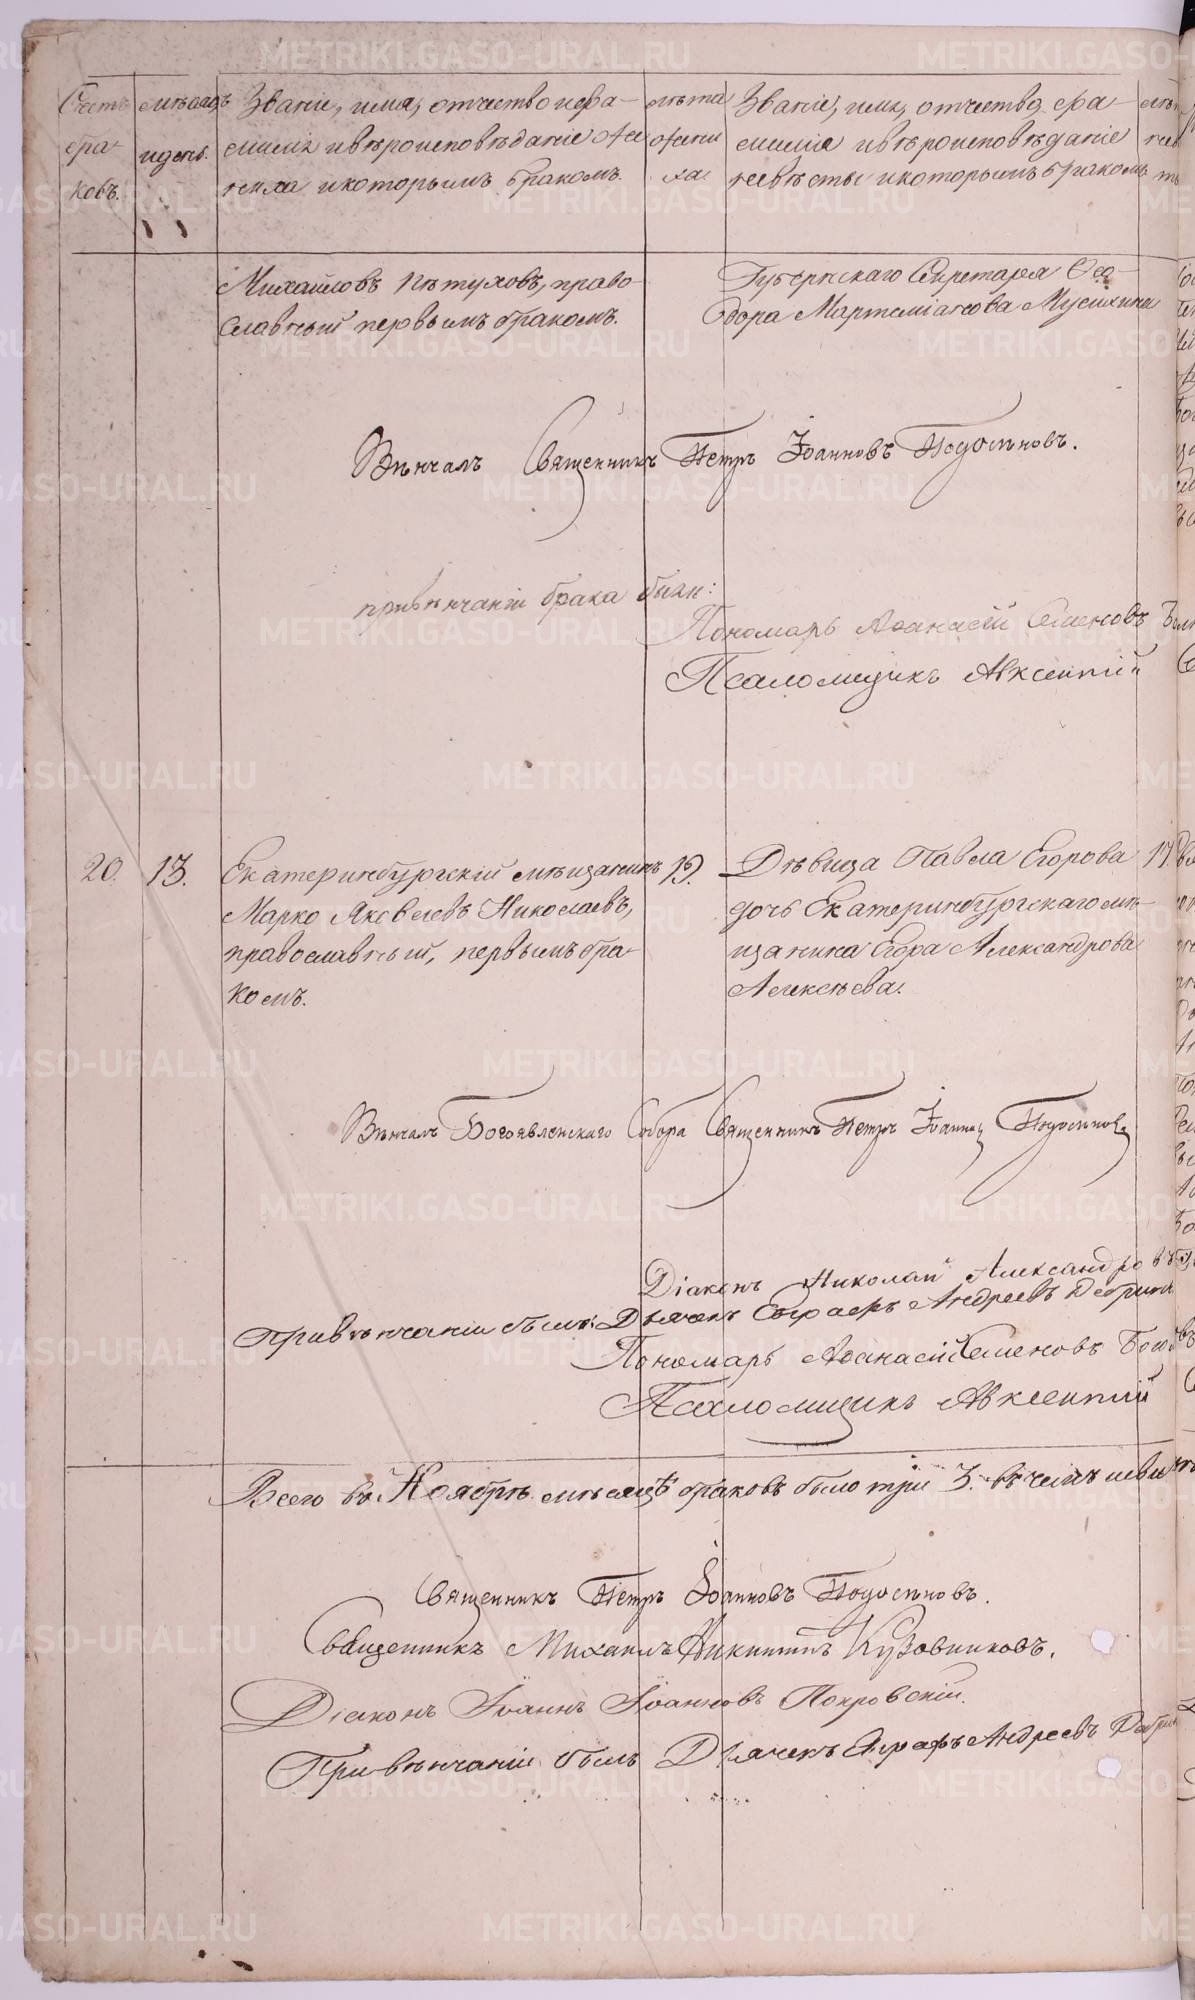 Счетъ браковъ.
мѣсяцъ и день.
Званіе, имя, отчество и фа-
милія и вѣроисповѣданіе же-
ниха и которымъ бракомъ.
лѣта жени ха
Званіе, имя, отчество, фа-
милія и вѣроисповѣданіе
невѣсты и которымъ бракомъ
Михайловъ Пѣтуховъ, право-
славный первымъ бракомъ.
Губернскаго Секретаря Ѳео-
дора Мартеміанова Мусихина
Вѣнчалъ Священникъ Петръ Іоанновъ Подосѣновъ.
при вѣнчаніи брака были:
Пономарь Аѳанасій Семеновъ
Псаломщикъ Авксентій
20. 13.
Екатеринбургскій мѣщанинъ 19.
Марко Яковлевъ Николаевъ,
православный, первымъ бра-
комъ.
Дѣвица Павла Егорова 17.
дочь Екатеринбургскаго мѣ-
щанина Егора Александрова
Алексѣева.
Вѣнчалъ Богоявленскаго Собора Священникъ Петръ Іоанновъ Подосѣновъ
Діаконъ Николай Александровъ
При вѣнчаніи были: Дьячекъ Евграфъ Андреевъ
Пономарь Аѳанасій Семеновъ
Псаломщикъ Авксентій
Всего въ Ноябрѣ мѣсяцѣ браковъ было три 3. въ чемъ
Священникъ Петръ Іоанновъ Подосѣновъ.
Священникъ Михаилъ Никитинъ Кузовниковъ.
Діаконъ Іоаннъ Іоанновъ Покровскій.
При вѣнчаніи былъ Дьячекъ Евграфъ Андреевъ
METRIKI.GASO-URAL.RU